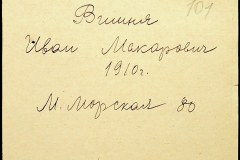 101
Вишня
Иван Макарович
1910г.
М. Морская 80